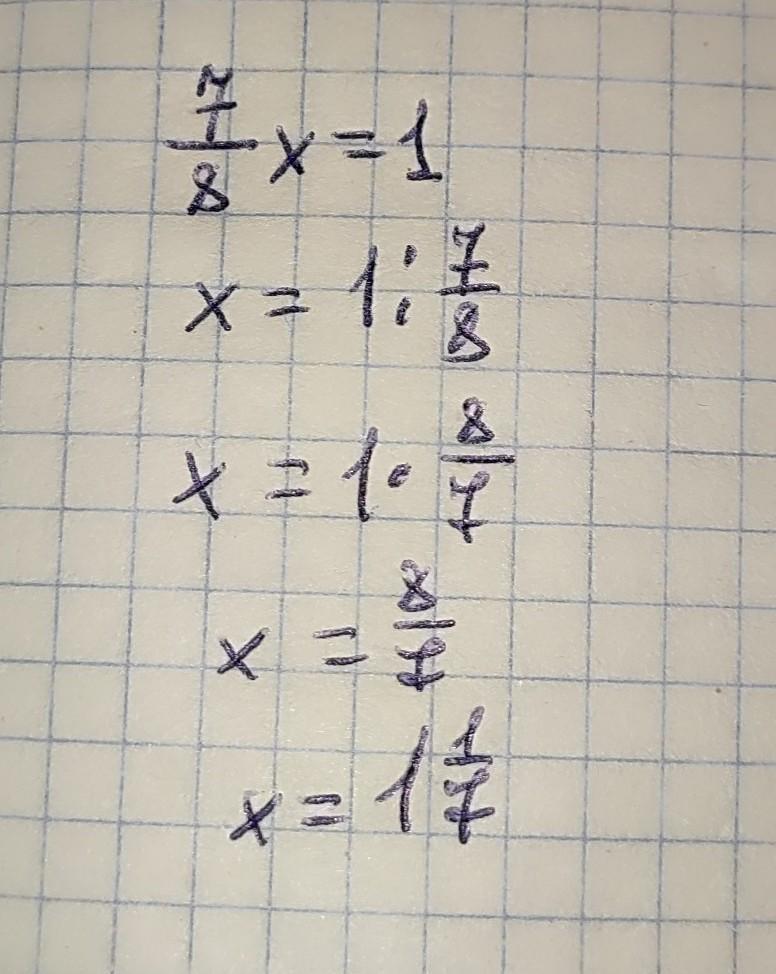 7/8 x = 1
x = 1 : 7/8
x = 1 · 8/7
x = 8/7
x = 1 1/7